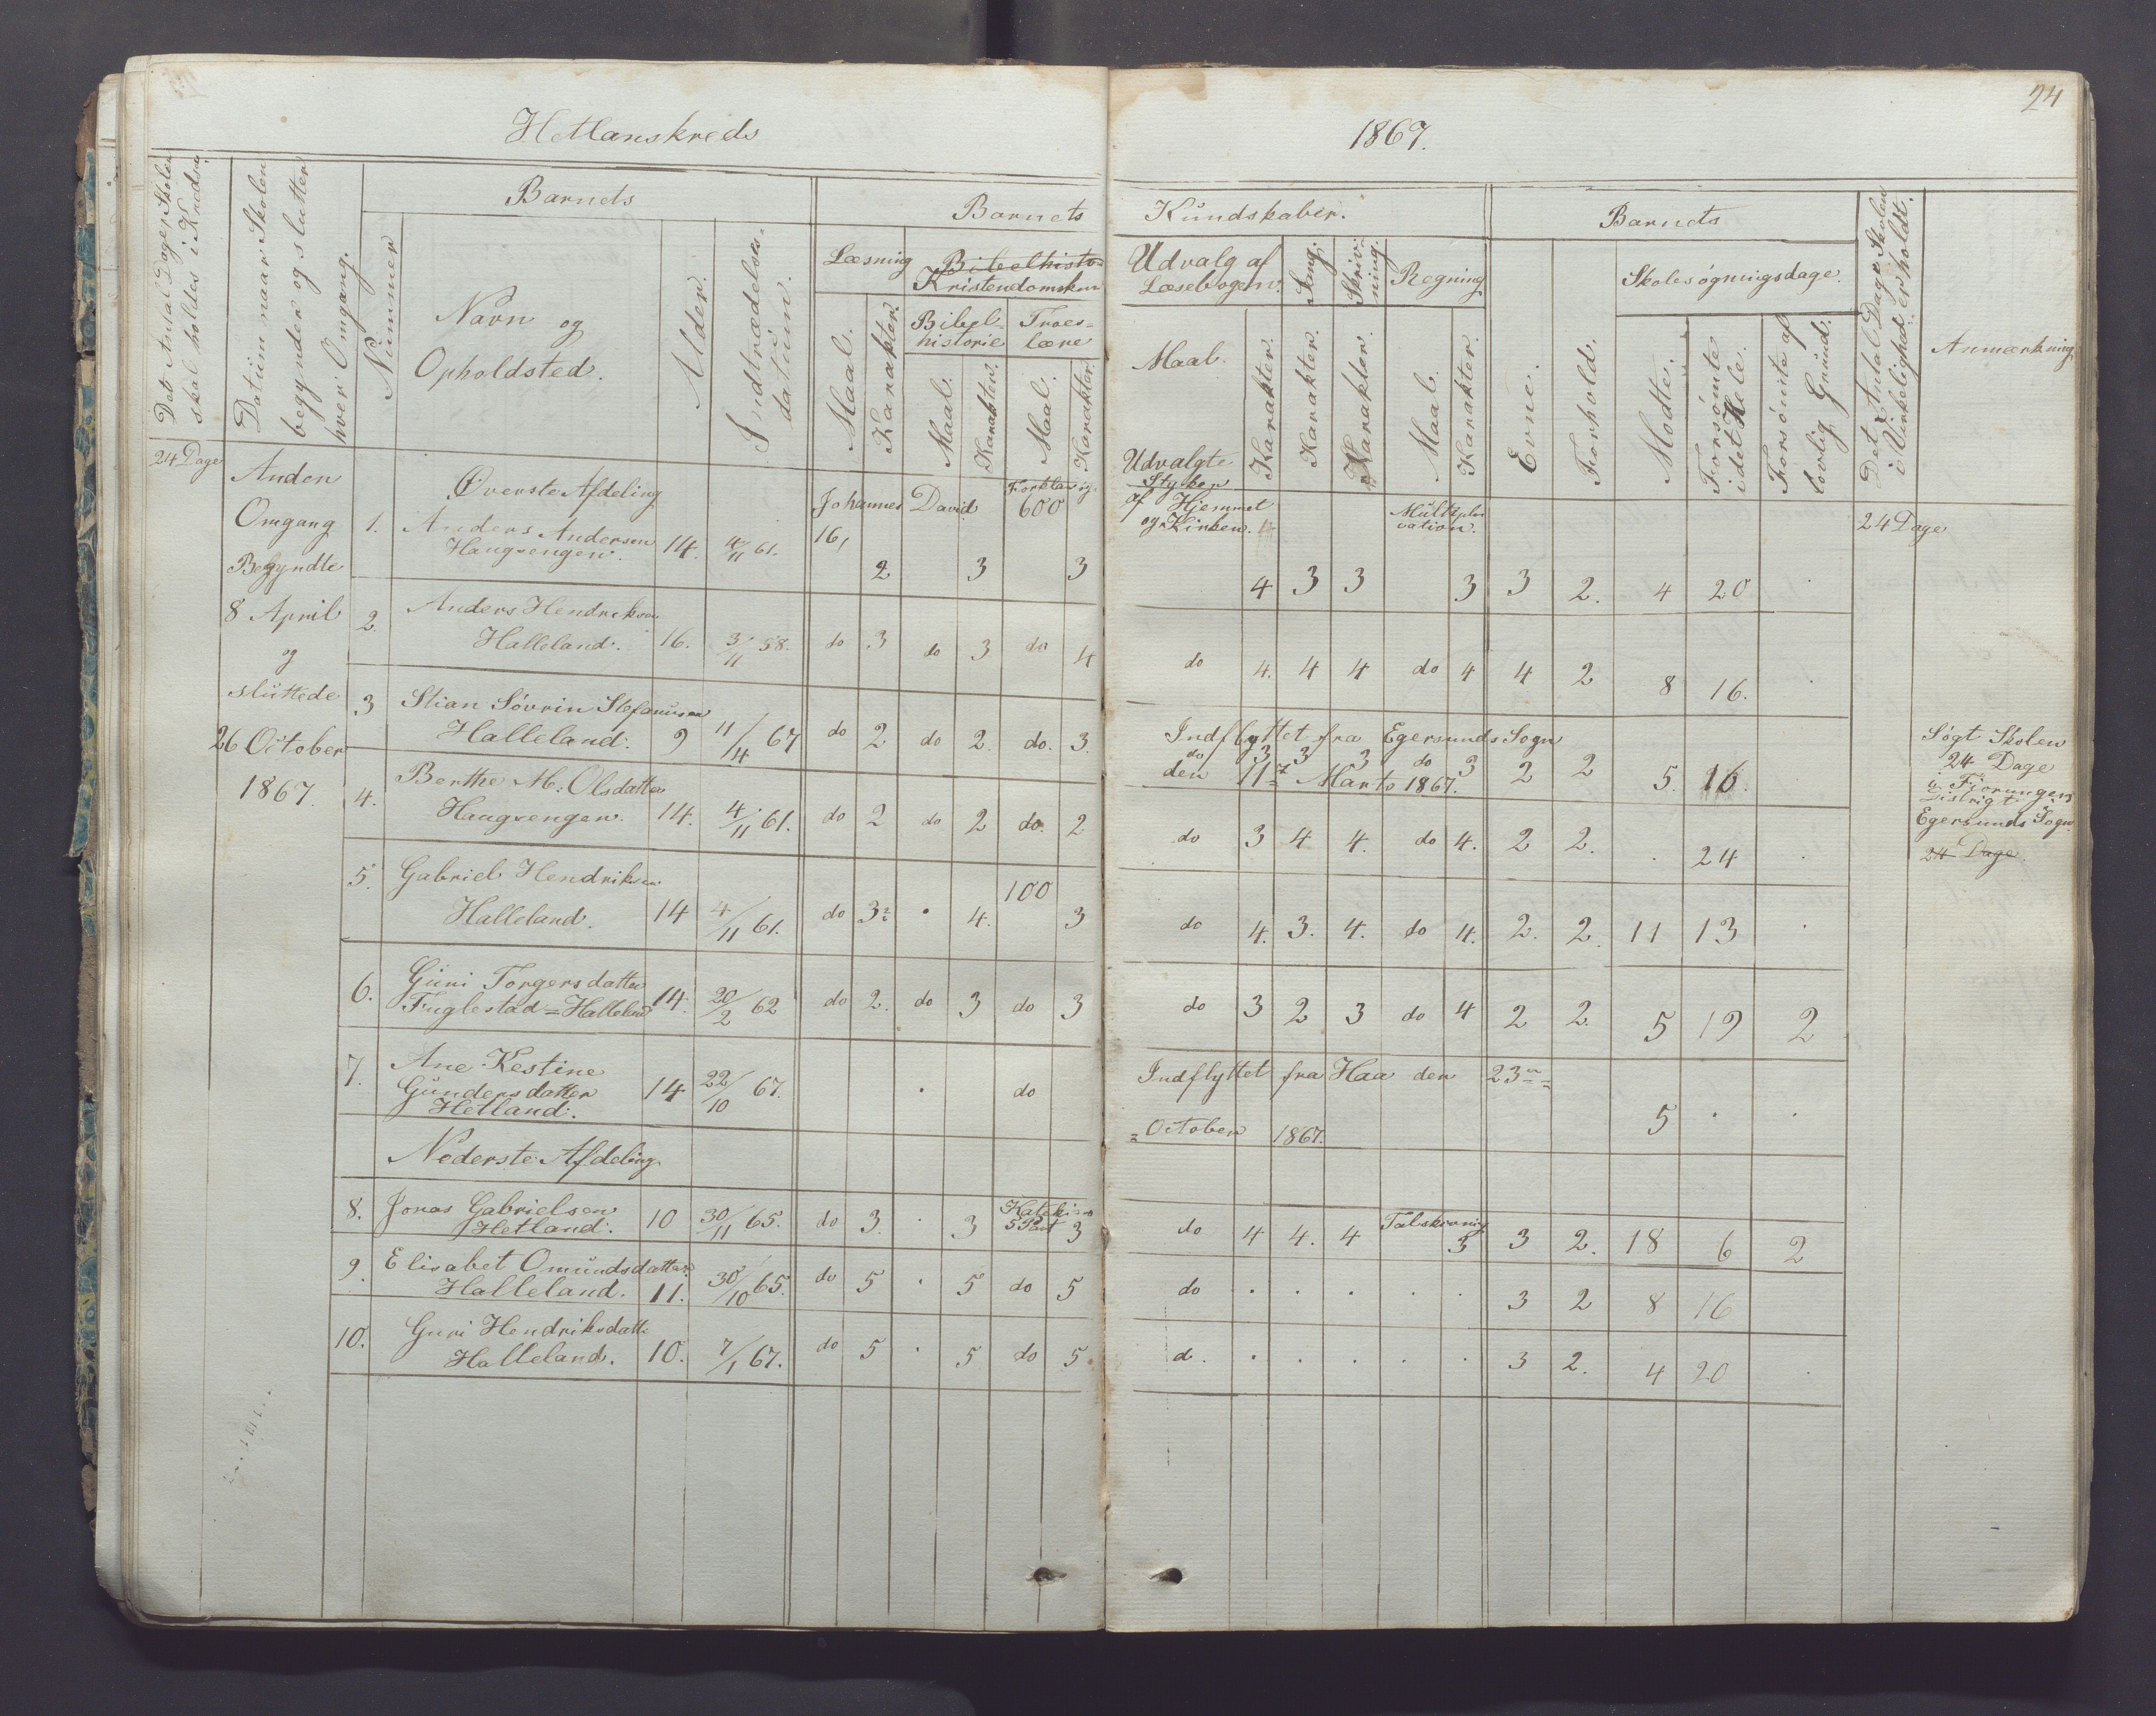 24
Hetlanskreds
1867.
Det Antal Dage, Skolen
skal holdes i Kredsen
Datum naar Skolen
begynder og slutter
hver Omgang.
Barnets
Nummer
Navn og
Opholdsted.
Alder.
Indtrædelses-
datum.
Barnets
Kundskaber.
Læsning
Bibelhisto-
Kristendomskun
Maal.
Karakter.
Bibel-
historie
Maal.
Karakter.
Troes-
lære
Maal.
Karakter.
Udvalg af
Læsebogen.
Maal.
Karakter.
Sang.
Karakter.
Skriv-
ning.
Karakter.
Regning
Maal.
Karakter.
Barnets
Evne.
Forhold.
Skolesøgningsdage.
Mødte.
Forsømte
i det Hele.
Forsømte af
lovlig Grund.
Det Antal Dage Skolen
i Virkelighed er holdt.
Anmærkning
24 Dage
Anden
Omgang
Begyndte
8 April
og
sluttede
26 October
1867.
Øverste Afdeling
Johannes David Forklaring.
16, 600
Udvalgte
Stykker
af Hjemmet
og Kirken.
Multipli
cation.
24 Dage
1. Anders Andersen
Haugvengen. 14. 4/11 61. 2 3 3 4 3 3 3 3 2. 4 20 .
2. Anders Hendriksen
Halleland. 16. 3/11 58. do 3 do 3 do 4 do 4. 4 4 do 4 4 2 8 16. .
3 Stian Sövrin Stefanusen
Halleland. 9 11/4 67 do 2 do 2. do. 3.
Indflyttet fra Egersunds Sogn
do 3 3 3 do 3 2 2 5. 16.
den 11te Marts 1867.
Søgt Skolen
24 Dage
i
Distrigt
Egersunds Sogn
24 Dage
4. Berthe M: Olsdatter
Haugvengen. 14. 4/11 61. do 2 do 2 do. 2 do 3 4 4. do 4. 2 2. . 24 .
5. Gabriel Hendriksen
100
Halleland. 14 4/11 61. do 3 . 4. 3 do 4. 3. 4. do 4. 2. 2. 11 13 .
6. Guri Torgersdatter
Fuglestad=Halleland 14. 20/2 62 do 2. do 3 do 3 do 3 2 3 do 4 2 2. 5 19 2
7. Ane Kestine
Gundersdatter
Hetland. 14 22/10 67. . do
Indflyttet fra Haa den 23
October 1867. 5 . .
Nederste Afdeling.
8. Jonas Gabrielsen
Hetland. 10 30/11 65. do 3. . 3 5 Part 3 do 4 4. 4 3 3 2. 18 6 2
9. Elisabet Omundsdatter
Halleland. 11. 30/10 65. do 5 . 5 do 5 do . . . . . 3 2 8 16
10. Guri Hendriksdatt:
Halleland. 10. 7/1 67. do 5 . 5 do 5. d. . . . . . 3 2. 4 20 .